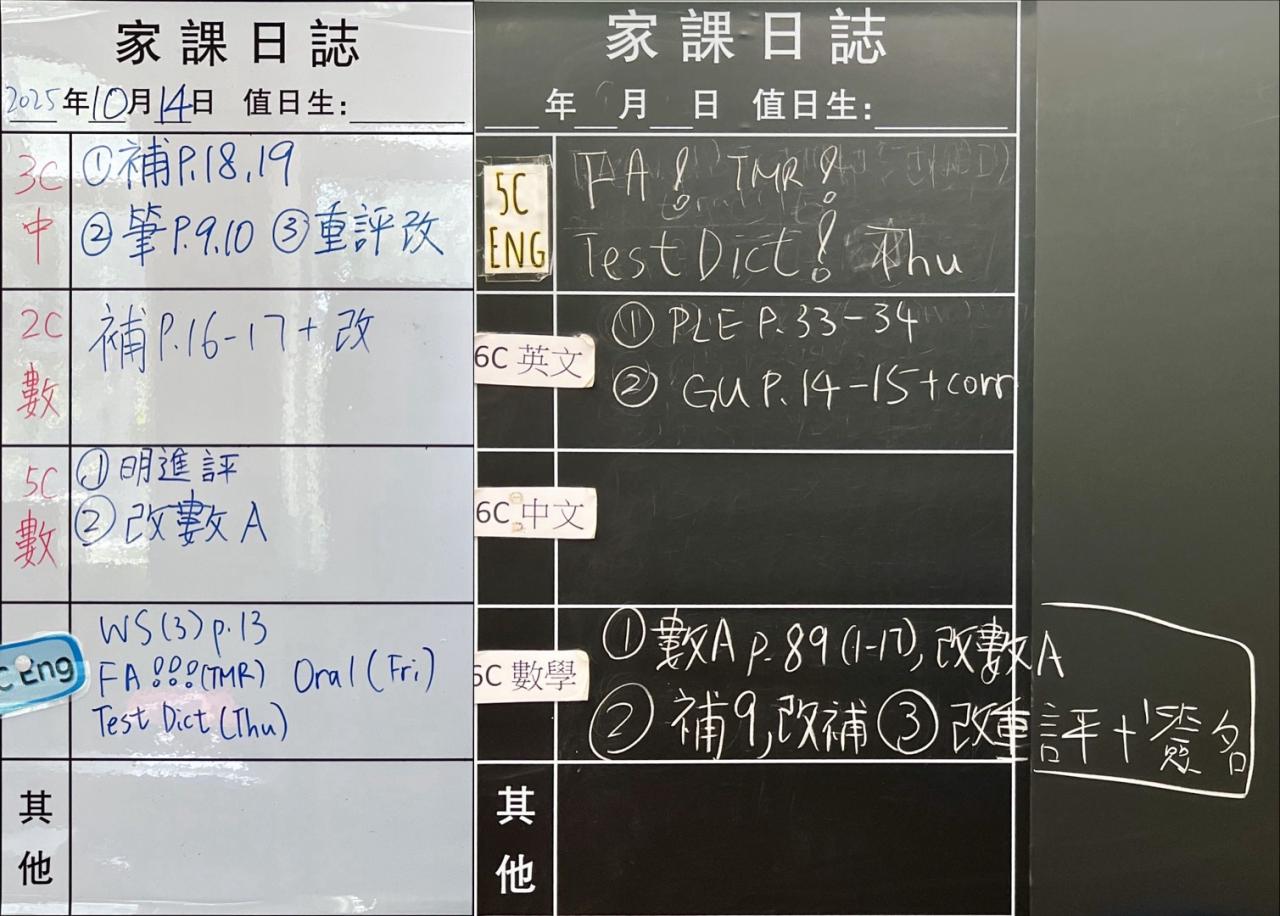 家課日誌
2025年10月14日 值日生:
3C
中
①補P.18,19
②筆P.9,10 ③重評改
2C
數
補P.16-17+改
5C
數
①明進評
②改數A
C Eng
WS(3)p.13
FA!!!(TMR) Oral(Fri)
Test Dict(Thu)
其他
家課日誌
年 月 日 值日生:
5C
ENG
FA! TMR!
Test Dict! Thu
6C 英文
① PLE P.33-34
② GU P.14-15+corr
6C 中文
6C 數學
①數A p.89(1-17),改數A
②補9,改補③改重評+簽名
其他